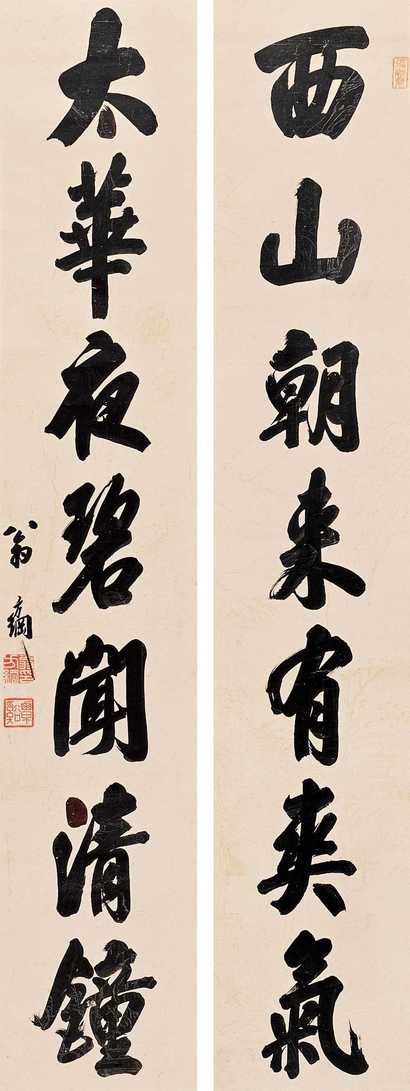 西山朝来有爽氣
太華夜碧聞清鐘
翁方綱